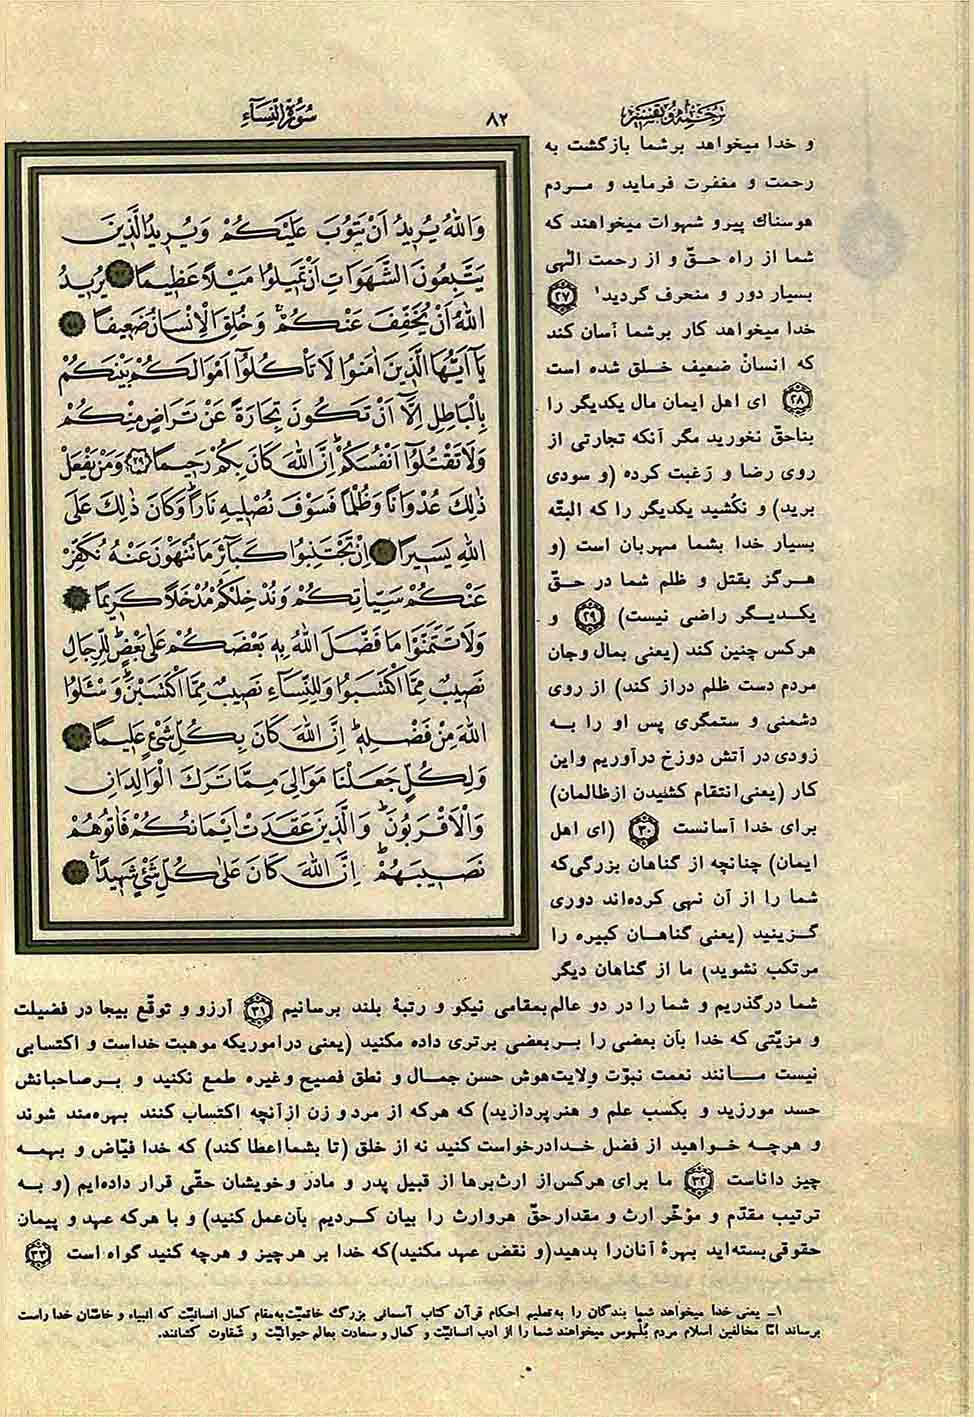 ترجمه و تفسیر
۸۲
سُورَةُ النِّسَآءِ
وَاللهُ يُرِيدُ اَنْ يَتُوبَ عَلَيْكُمْ وَيُرِيدُ الَّذِينَ
يَتَّبِعُونَ الشَّهَوَاتِ اَنْ تَمِيلُوا مَيْلاً عَظِيمًا ۲۷ يُرِيدُ
اللهُ اَنْ يُخَفِّفَ عَنْكُمْ وَخُلِقَ الْاِنْسَانُ ضَعِيفًا ۲۸
يَآ اَيُّهَا الَّذِينَ اٰمَنُوا لَا تَأْكُلُوٓا اَمْوَالَكُمْ بَيْنَكُمْ
بِالْبَاطِلِ اِلَّآ اَنْ تَكُونَ تِجَارَةً عَنْ تَرَاضٍ مِنْكُمْ
وَلَا تَقْتُلُوٓا اَنْفُسَكُمْ اِنَّ اللهَ كَانَ بِكُمْ رَحِيمًا ۲۹ وَمَنْ يَفْعَلْ
ذٰلِكَ عُدْوَانًا وَظُلْمًا فَسَوْفَ نُصْلِيهِ نَارًا وَكَانَ ذٰلِكَ عَلَى
اللهِ يَسِيرًا ۳۰ اِنْ تَجْتَنِبُوا كَبَآئِرَ مَا تُنْهَوْنَ عَنْهُ نُكَفِّرْ
عَنْكُمْ سَيِّاٰتِكُمْ وَنُدْخِلْكُمْ مُدْخَلاً كَرِيمًا ۳۱
وَلَا تَتَمَنَّوْا مَا فَضَّلَ اللهُ بِهِ بَعْضَكُمْ عَلٰى بَعْضٍ لِلرِّجَالِ
نَصِيبٌ مِمَّا اكْتَسَبُوا وَلِلنِّسَآءِ نَصِيبٌ مِمَّا اكْتَسَبْنَ وَسْئَلُوا
اللهَ مِنْ فَضْلِهِ اِنَّ اللهَ كَانَ بِكُلِّ شَیْءٍ عَلِيمًا ۳۲
وَلِكُلٍّ جَعَلْنَا مَوَالِيَ مِمَّا تَرَكَ الْوَالِدَانِ
وَالْاَقْرَبُونَ وَالَّذِينَ عَقَدَتْ اَيْمَانُكُمْ فَاٰتُوهُمْ
نَصِيبَهُمْ اِنَّ اللهَ كَانَ عَلٰى كُلِّ شَیْءٍ شَهِيدًا ۳۳
و خدا میخواهد برشما بازگشت به
رحمت و مغفرت فرماید و مردم
هوسناک پیرو شهوات میخواهند که
شما از راه حقّ و از رحمت الٰهی
بسیار دور و منحرف گردید۱ ۲۷
خدا میخواهد کار برشما آسان کند
که انسان ضعیف خلق شده است
۲۸ ای اهل ایمان مال یکدیگر را
بناحقّ نخورید مگر آنکه تجارتی از
روی رضا و رَغبت کرده (و سودی
برید) و نکُشید یکدیگر را که البتّه
بسیار خدا بشما مهربان است (و
هرگز بقتل و ظلم شما در حقّ
یکدیگر راضی نیست) ۲۹ و
هرکس چنین کند (یعنی بمال وجان
مردم دست ظلم دراز کند) از روی
دشمنی و ستمگری پس او را به
زودی در آتش دوزخ درآوریم واین
کار (یعنی انتقام کشیدن ازظالمان)
برای خدا آسانست ۳۰ (ای اهل
ایمان) چنانچه از گناهان بزرگی که
شما را از آن نهی کرده‌اند دوری
گزینید (یعنی گناهان کبیره را
مرتکب نشوید) ما از گناهان دیگر
شما درگذریم و شما را در دو عالم بمقامی نیکو و رتبۀ بلند برسانیم ۳۱ آرزو و توقّع بیجا در فضیلت
و مزیّتی که خدا بآن بعضی را بربعضی برتری داده مکنید (یعنی دراموریکه موهبت خداست و اکتسابی
نیست مانند نعمت نبوّت ولایت هوش حسن جمال و نطق فصیح وغیره طمع نکنید و برصاحبانش
حسد مورزید و بکسب علم و هنرپردازید) که هرکه از مرد و زن ازآنچه اکتساب کنند بهره‌مند شوند
و هرچه خواهید از فضل خدادرخواست کنید نه از خلق (تا بشمااعطا کند) که خدا فیّاض و بهمه
چیز داناست ۳۲ ما برای هرکس از ارث‌برها از قبیل پدر و مادر وخویشان حقّی قرار داده‌ایم (و به
ترتیب مقدّم و مؤخّر ارث و مقدارحقّ هروارث را بیان کردیم بآن‌عمل کنید) و با هرکه عهد و پیمان
حقوقی بسته‌اید بهرۀ آنان‌را بدهید (و نقض عهد مکنید) که خدا بر هرچیز و هرچه کنید گواه است ۳۳
۱ـ یعنی خدا میخواهد شما بندگان را به‌تعلیم احکام قرآن کتاب آسمانی بزرگ خاتمیّت به‌مقام کمال انسانیّت که انبیاء و خاصّان خدا راست
برساند امّا مخالفین اسلام مردم بُلهوس میخواهند شما را از ادب انسانیّت و کمال و سعادت بعالم حیوانیّت و شقاوت کشانند.